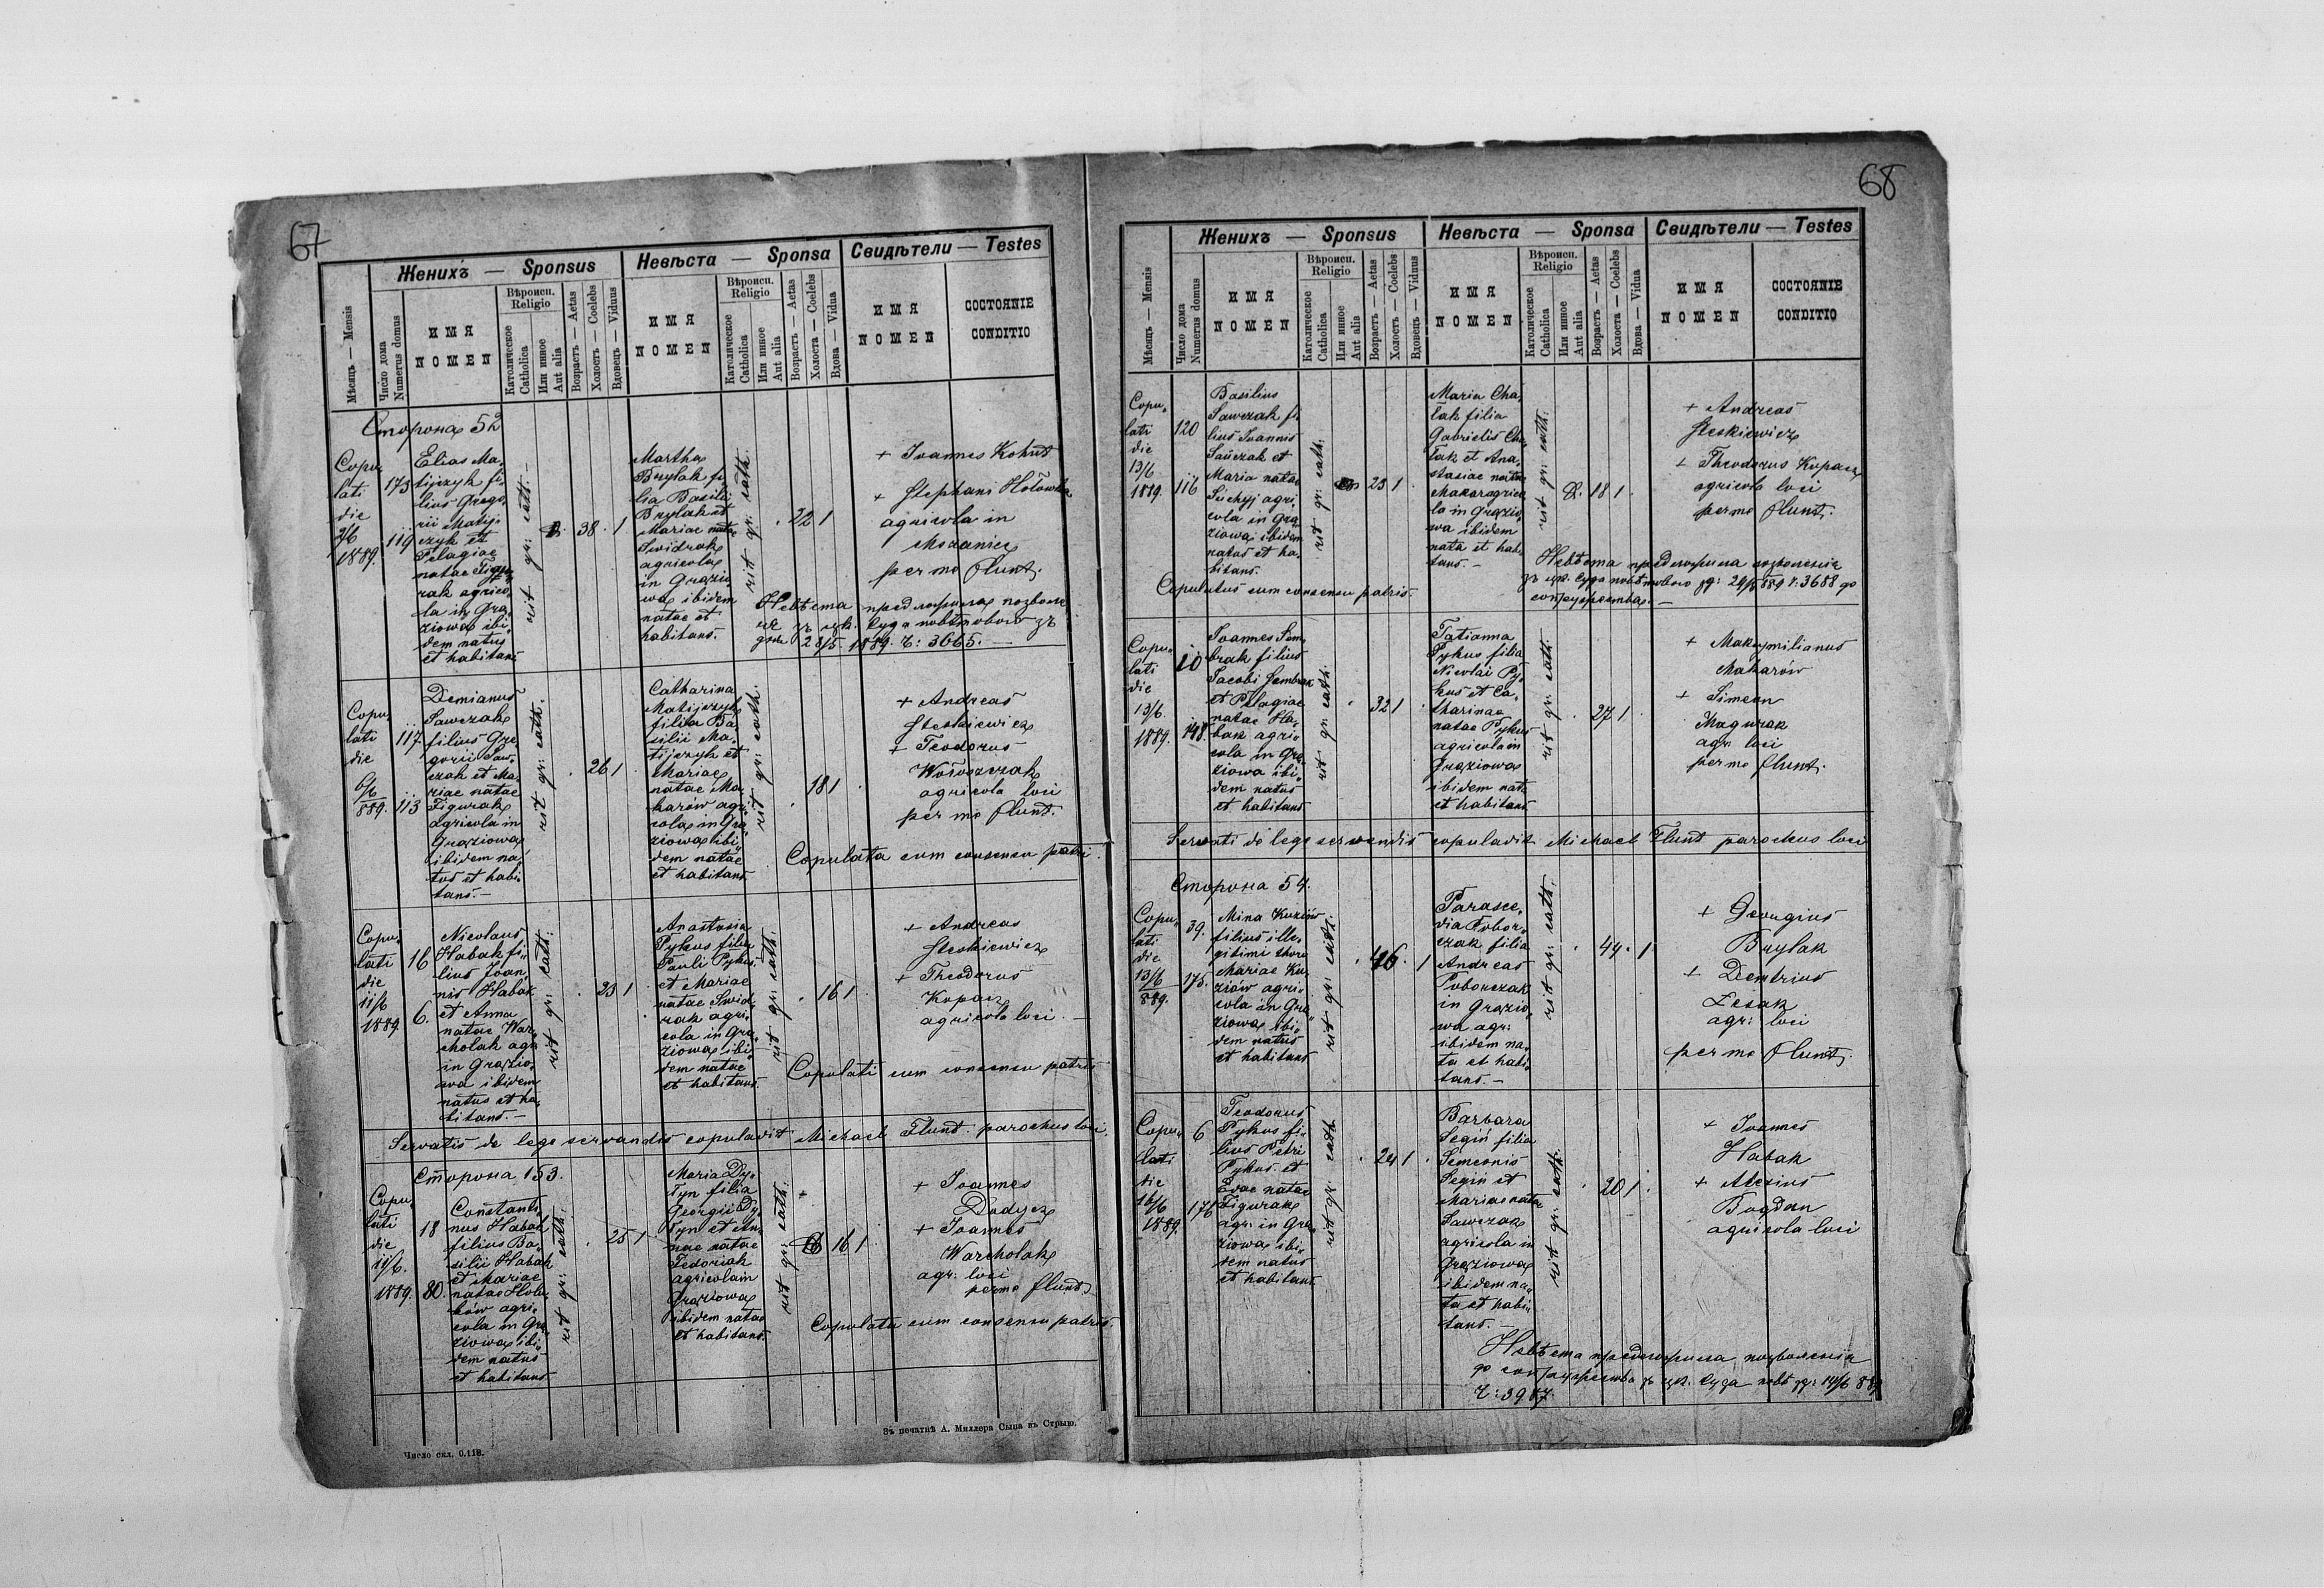 67
Женихъ — Sponsus
Невѣста — Sponsa
Свидѣтели — Testes
Мѣсяць — Mensis
Число дома
Numerus domus
ИМЯ
NOMEN
Вѣроисп.
Religio
Католическое
Catholica
Или инное
Aut alia
Возрастъ — Aetas
Холостъ — Coelebs
Вдовець — Viduus
ИМЯ
NOMEN
Вѣроисп.
Religio
Католическое
Catholica
Или инное
Aut alia
Возрастъ — Aetas
Холоста — Coelebs
Вдова — Vidua
ИМЯ
NOMEN
СОСТОЯНІЕ
CONDITIO
Сторона 52
Copu„
lati
die
1889.
173
119
Elias Ma„
tijczyk fi„
lius Grego„
rii Matij„
czyk et
Pelagiae
natae Figu„
rak agrico„
la in Gra„
ziowa ibi„
dem natus
et habitans
rit gr: cath. —
38. 1
Martha
Brylak fi„
lia Basilii
Brylak et
Mariae natae
Swidrak
agricola
in Grazio„
wa ibidem
natae et
habitans.
rit gr: cath.
22 1
+ Ioannes Kohut
+ Stephani Hołowka
agricola in
per me Flunt.
Невѣста предложила позволе
зъ цѣк. Суда повѣтового зъ
дня 28/5. 1889. Ч: 3665. —
Copu„
lati
die
6/6
889.
117.
113
Demianus
Sawczak
filius Gre„
gorii Saw„
czak et Ma„
riae natae
Figurak
agricola in
Graziowa
ibidem na„
tus et habi„
tans. —
rit gr: cath.
26 1
Catharina
Matijczyk
filia Ba„
silii Ma„
tijczyk et
Mariae
natae Ma„
karów agri„
cola in Gra„
ziowa ibi„
dem natae
et habitans
rit gr: cath.
18 1
+ Andreas
Steskiewicz
+ Teodorus
Wołoszczak
agricola loci
per me Flunt.
Copulata cum consensu patri.
Copu„
lati
die
11/6
1889.
16
6.
Nicolaus
Habak fi„
lius Joan„
nis Habak
et Anna
natae War„
cholak agr.
in Grazio„
wa ibidem
natus et ha„
bitans. —
rit gr: cath:
23 1
Anastasia
Pykus filia
Pauli Pykus.
et Mariae
natae Swid„
rak agri„
cola in Gra„
ziowa ibi„
dem natae
et habitans.
rit gr: cath.
16 1
+ Andreas
Steskiewicz
+ Theodorus
Kopacz
agricola loci. —
Copulati cum consensu patris
Servatis de lege servandis copulavit Michael Flunt parochus loci.
Сторона 153.
Copu„
lati
die
11/6.
1889.
18
80.
Constanti„
nus Habak
filius Ba„
silii Habak
et Mariae
natae Holu„
ków agri„
cola in Gra„
ziowa ibi„
dem natus
et habitans
rit gr: cath:
25 1
Maria Dy„
tyn filia
Georgii Dy„
tyn et An„
nae natae
Fedoriak
agricola in
Graziowa
ibidem natae
et habitans.
rit gr: cath:
16 1
+ Ioannes
Dodycz
+ Ioannes
Warcholak
agr: loci
per me Flunt.
Copulata cum consensu patris.
Число скл. 0.118.
Зъ печатнѣ А. Миллера Сына въ Стрыю.
68
Женихъ — Sponsus
Невѣста — Sponsa
Свидѣтели — Testes
Мѣсяць — Mensis
Число дома
Numerus domus
ИМЯ
NOMEN
Вѣроисп.
Religio
Католическое
Catholica
Или инное
Aut alia
Возрастъ — Aetas
Холостъ — Coelebs
Вдовець — Viduus
ИМЯ
NOMEN
Вѣроисп.
Religio
Католическое
Catholica
Или инное
Aut alia
Возрастъ — Aetas
Холоста — Coelebs
Вдова — Vidua
ИМЯ
NOMEN
СОСТОЯНІЕ
CONDITIO
Copu„
lati
die
13/6
1889.
120
116
Basilius
Sawczak fi„
lius Ioannis
Sawczak et
Maria natae
Suchyj agri„
cola in Gra„
ziowa ibidem
natus et ha„
bitans.
rit gr: cath:
23 1
Maria Cha„
łak filia
Gavrielis Cha„
łak et Ana„
stasiae natae
Makar agrico
la in Grazio„
wa ibidem
nata et habi„
tans. —
rit gr: cath:
18 1
+ Andreas
Steskiewicz
+ Theodorus Kopacz
agricola loci
per me Flunt.
Copulatus cum consensu patris.
Невѣста предложила позволенія
зъ цѣк. Суда повѣтового 1889 Ч. 3688 до
супружества. —
Copu„
lati
die
13/6.
1889.
10
148.
Ioannes Sem„
brak filius
Jacobi Sembrak
et Pelagiae
natae Ha„
bak agri„
cola in Gra„
ziowa ibi„
dem natus
et habitans
rit gr: cath.
32 1
Tatianna
Pykus filia
Nicolai Py„
kus et Ca„
tharinae
natae Pykus
agricola in
Graziowa
ibidem nata
et habitans
rit gr: cath.
27 1
+ Maksymilianus
Makarów
+ Simeon
Magurak
agr. loci
per me Flunt.
Servati de lege servendis copulavit Michael Flunt parochus loci
Сторона 54.
Copu„
lati
die
13/6
889.
39.
175.
Mina Kuziów
filius ille„
gitimi thori
Mariae Ku„
ziów agri„
cola in Gra„
ziowa ibi„
dem natus
et habitans
rit gr: cath:
46. 1
Parasce„
via Pobor„
czak filia
Andreas
Poborczak
in Grazio„
wa agr:
ibidem na„
ta et habi„
tans. —
rit gr: cath.
44. 1
+ Georgius
Brylak
+ Demtrius
Lesak
agr: loci
per me Flunt.
Copu„
lati
die
16/6
1889.
6
176
Teodorus
Pykus fi„
lius Petri
Pykus. et
Evae natae
Figurak
agr: in Gra„
ziowa ibi„
dem natus
et habitans
rit gr: cath
24 1
Barbara
Segin filia
Semeonis
Segin et
Mariae natae
Sawczak
agricola in
Graziowa
ibidem na„
ta et habi„
tans. —
rit gr: cath.
20 1
+ Ioannes
Habak
+ Alexius
Bogdan
agricola loci
Невѣста предложила позволенія
до супружества зъ цѣк. Суда повѣт 14/6 889
Ч: 3987.